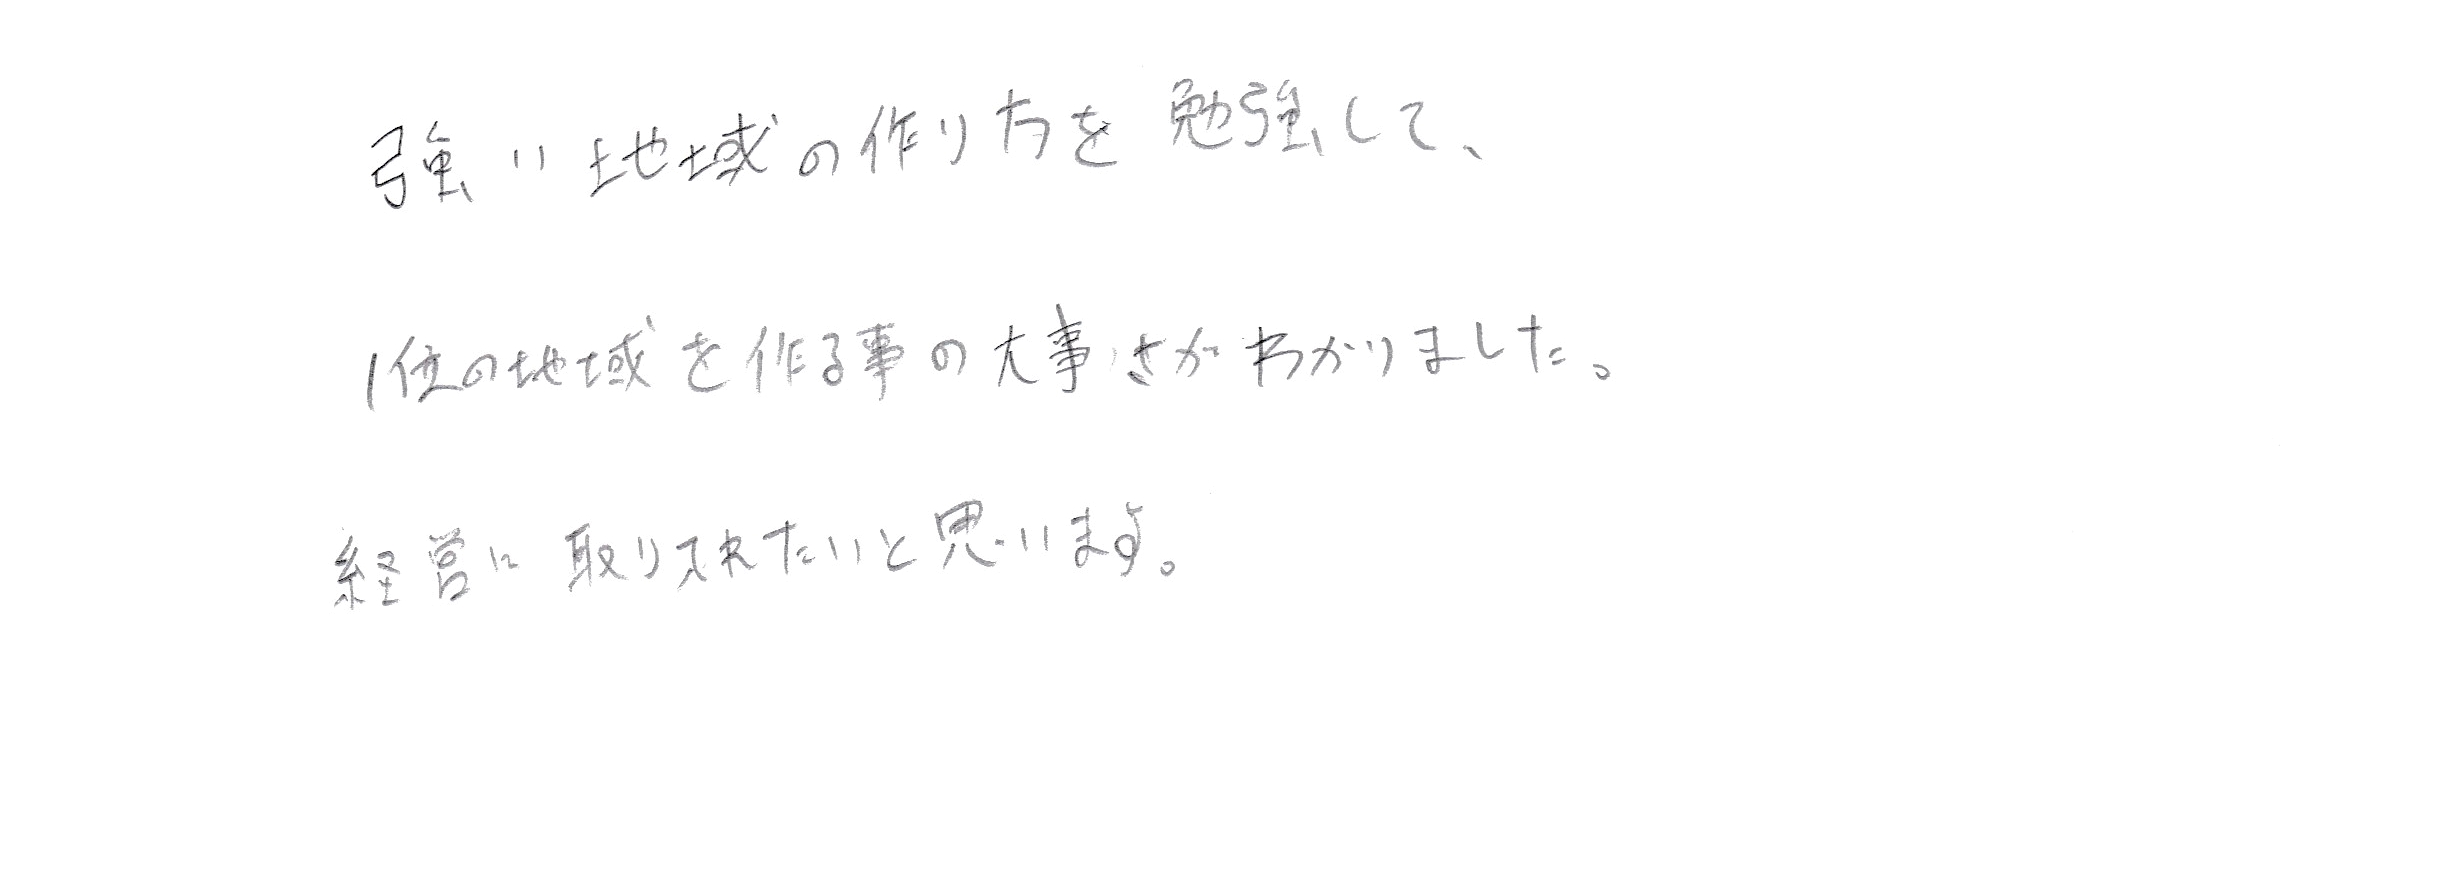 強い地域の作り方を勉強して、
1位の地域を作る事の大事さがわかりました。
経営に取り入れたいと思います。